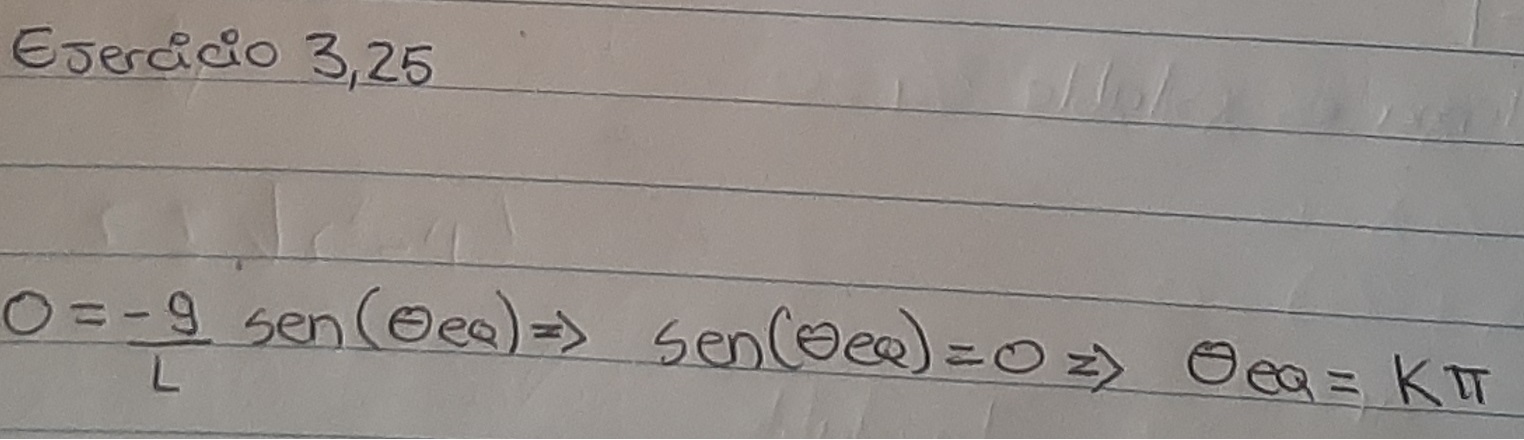 Ejercicio 3,25
0 = -g/L sen(θeq) => sen(θeq) = 0 => θeq = Kπ